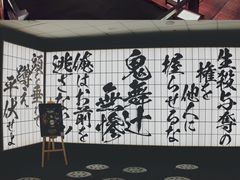 生殺与奪の
権を
他人に
握らせるな
鬼舞辻
無惨
俺はお前を
逃さない
頭を垂れて
蹲え
平伏せよ